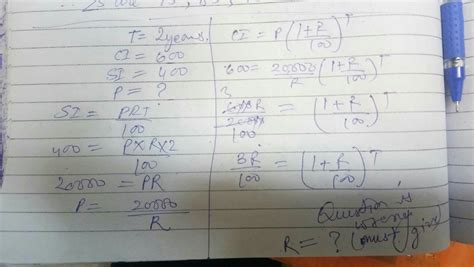 T = 2years.
CI = 600
SI = 400
P = ?
SI = PRT
100
400 = P×R×2
100
20000 = PR
P = 20000
R
CI = P(1+R/100)^T
600 = 20000/R (1+R/100)^T
3
= (1+R/100)^T
100
3R/100 = (1+R/100)^T
Question is
R = ? (must give)